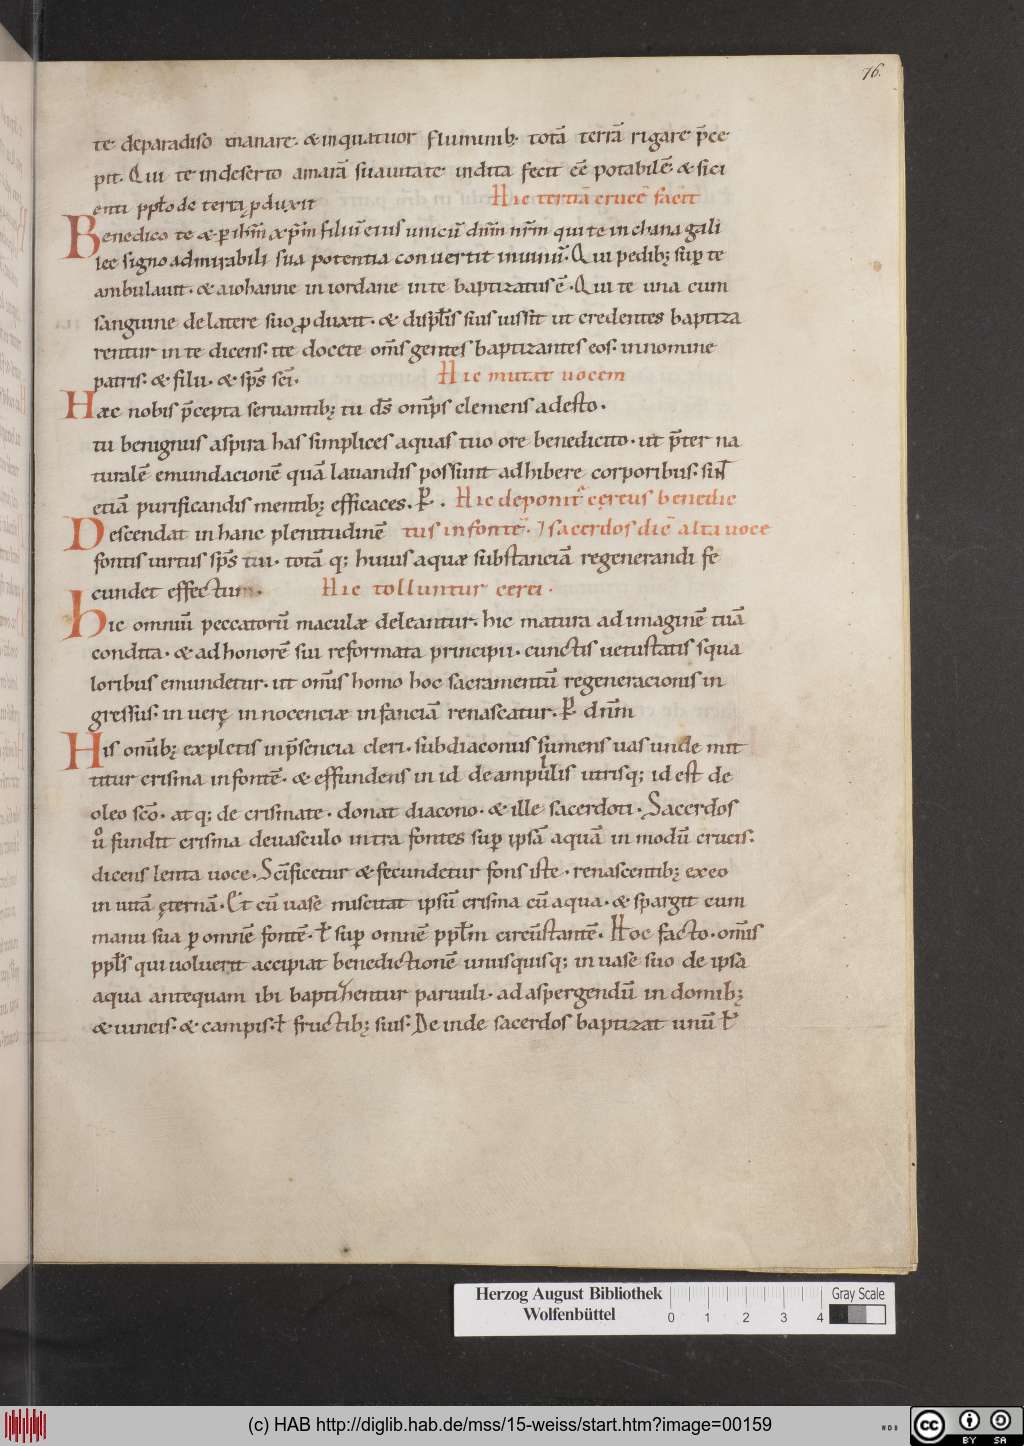 76.
te deparadiso manare· & inquatuor fluminib; totā terrā rigare p̄ce
pit. Qui te indeserto amarā suauitate indita fecit eē potabilē· & sici
enti pplo de tertę pduxit Hic tertiā crucē facit
Benedico te & p ihm̄ xp̄m filiū eius unicū dn̄m nr̄m qui te in chana gali
lee signo admirabili sua potentia conuertit inuinū. Qui pedib; sup te
ambulauit· & aiohanne in iordane in te baptizatus ē· Qui te una cum
sanguine de latere suo pduxit· & displis suis iussit ut credentes baptiza
rentur in te dicens· ite docete om̄s gentes baptizantes eos· innomine
patris· & filii· & sp̄s sc̄i· Hic mutat uocem
Haec nobis p̄cepta seruantib; tu ds̄ omp̄s clemens adesto·
tu benignus aspira has simplices aquas tuo ore benedicito· ut p̄ter na
turalē emundacionē quā lauandis possunt adhibere corporibus· sint
etiā purificandis mentib; efficaces. P̱. Hic deponit' cęreus benedic
Descendat in hanc plenitudinē tus infontē· ⁊ sacerdos dic̄ alta uoce
fontis uirtus sp̄s tui· totā q; huius aquæ substanciā regenerandi fe
cundet effectum. Hic tolluntur cerei·
Hic omniū peccatorū maculæ deleantur· hic natura ad imaginē tuā
condita· & ad honorē sui reformata principii· cunctis uetustatis squa
loribus emundetur· ut omīs homo hoc sacramentū regeneracionis in
gressus· in uerę innocenciæ infanciā renascatur· P̱ dn̄m
His omīb; expletis inp̄sencia cleri· subdiaconus sumens uas unde mit
titur crisma infontē· & effundens in id de ampullis utrisq; id est de
oleo sc̄o· atq; de crismate· donat diacono· & ille sacerdoti· Sacerdos
uͦ fundit crisma deuasculo intra fontes sup ipsā aquā in modū crucis·
dicens lenta uoce· Sc̄ificetur & fecundetur fons iste· renascentib; exeo
in uitā ęternā· Et cū uase misceat ipsū crisma cū aqua· & spargit cum
manu sua p omnē fontē· ł sup omnē pplm̄ circūstantē· Hoc facto· om̄s
ppls qui uoluerit accipiat benedictionē unusquisq; in uase suo de ipsa
aqua antequam ibi baptizentur paruuli· ad aspergendū in domib;
& uineis· & campis· ł fructib; suis· Deinde sacerdos baptizat unū ł
Herzog August Bibliothek
Wolfenbüttel
0 1 2 3 4
Gray Scale
(c) HAB http://diglib.hab.de/mss/15-weiss/start.htm?image=00159
cc
BY SA